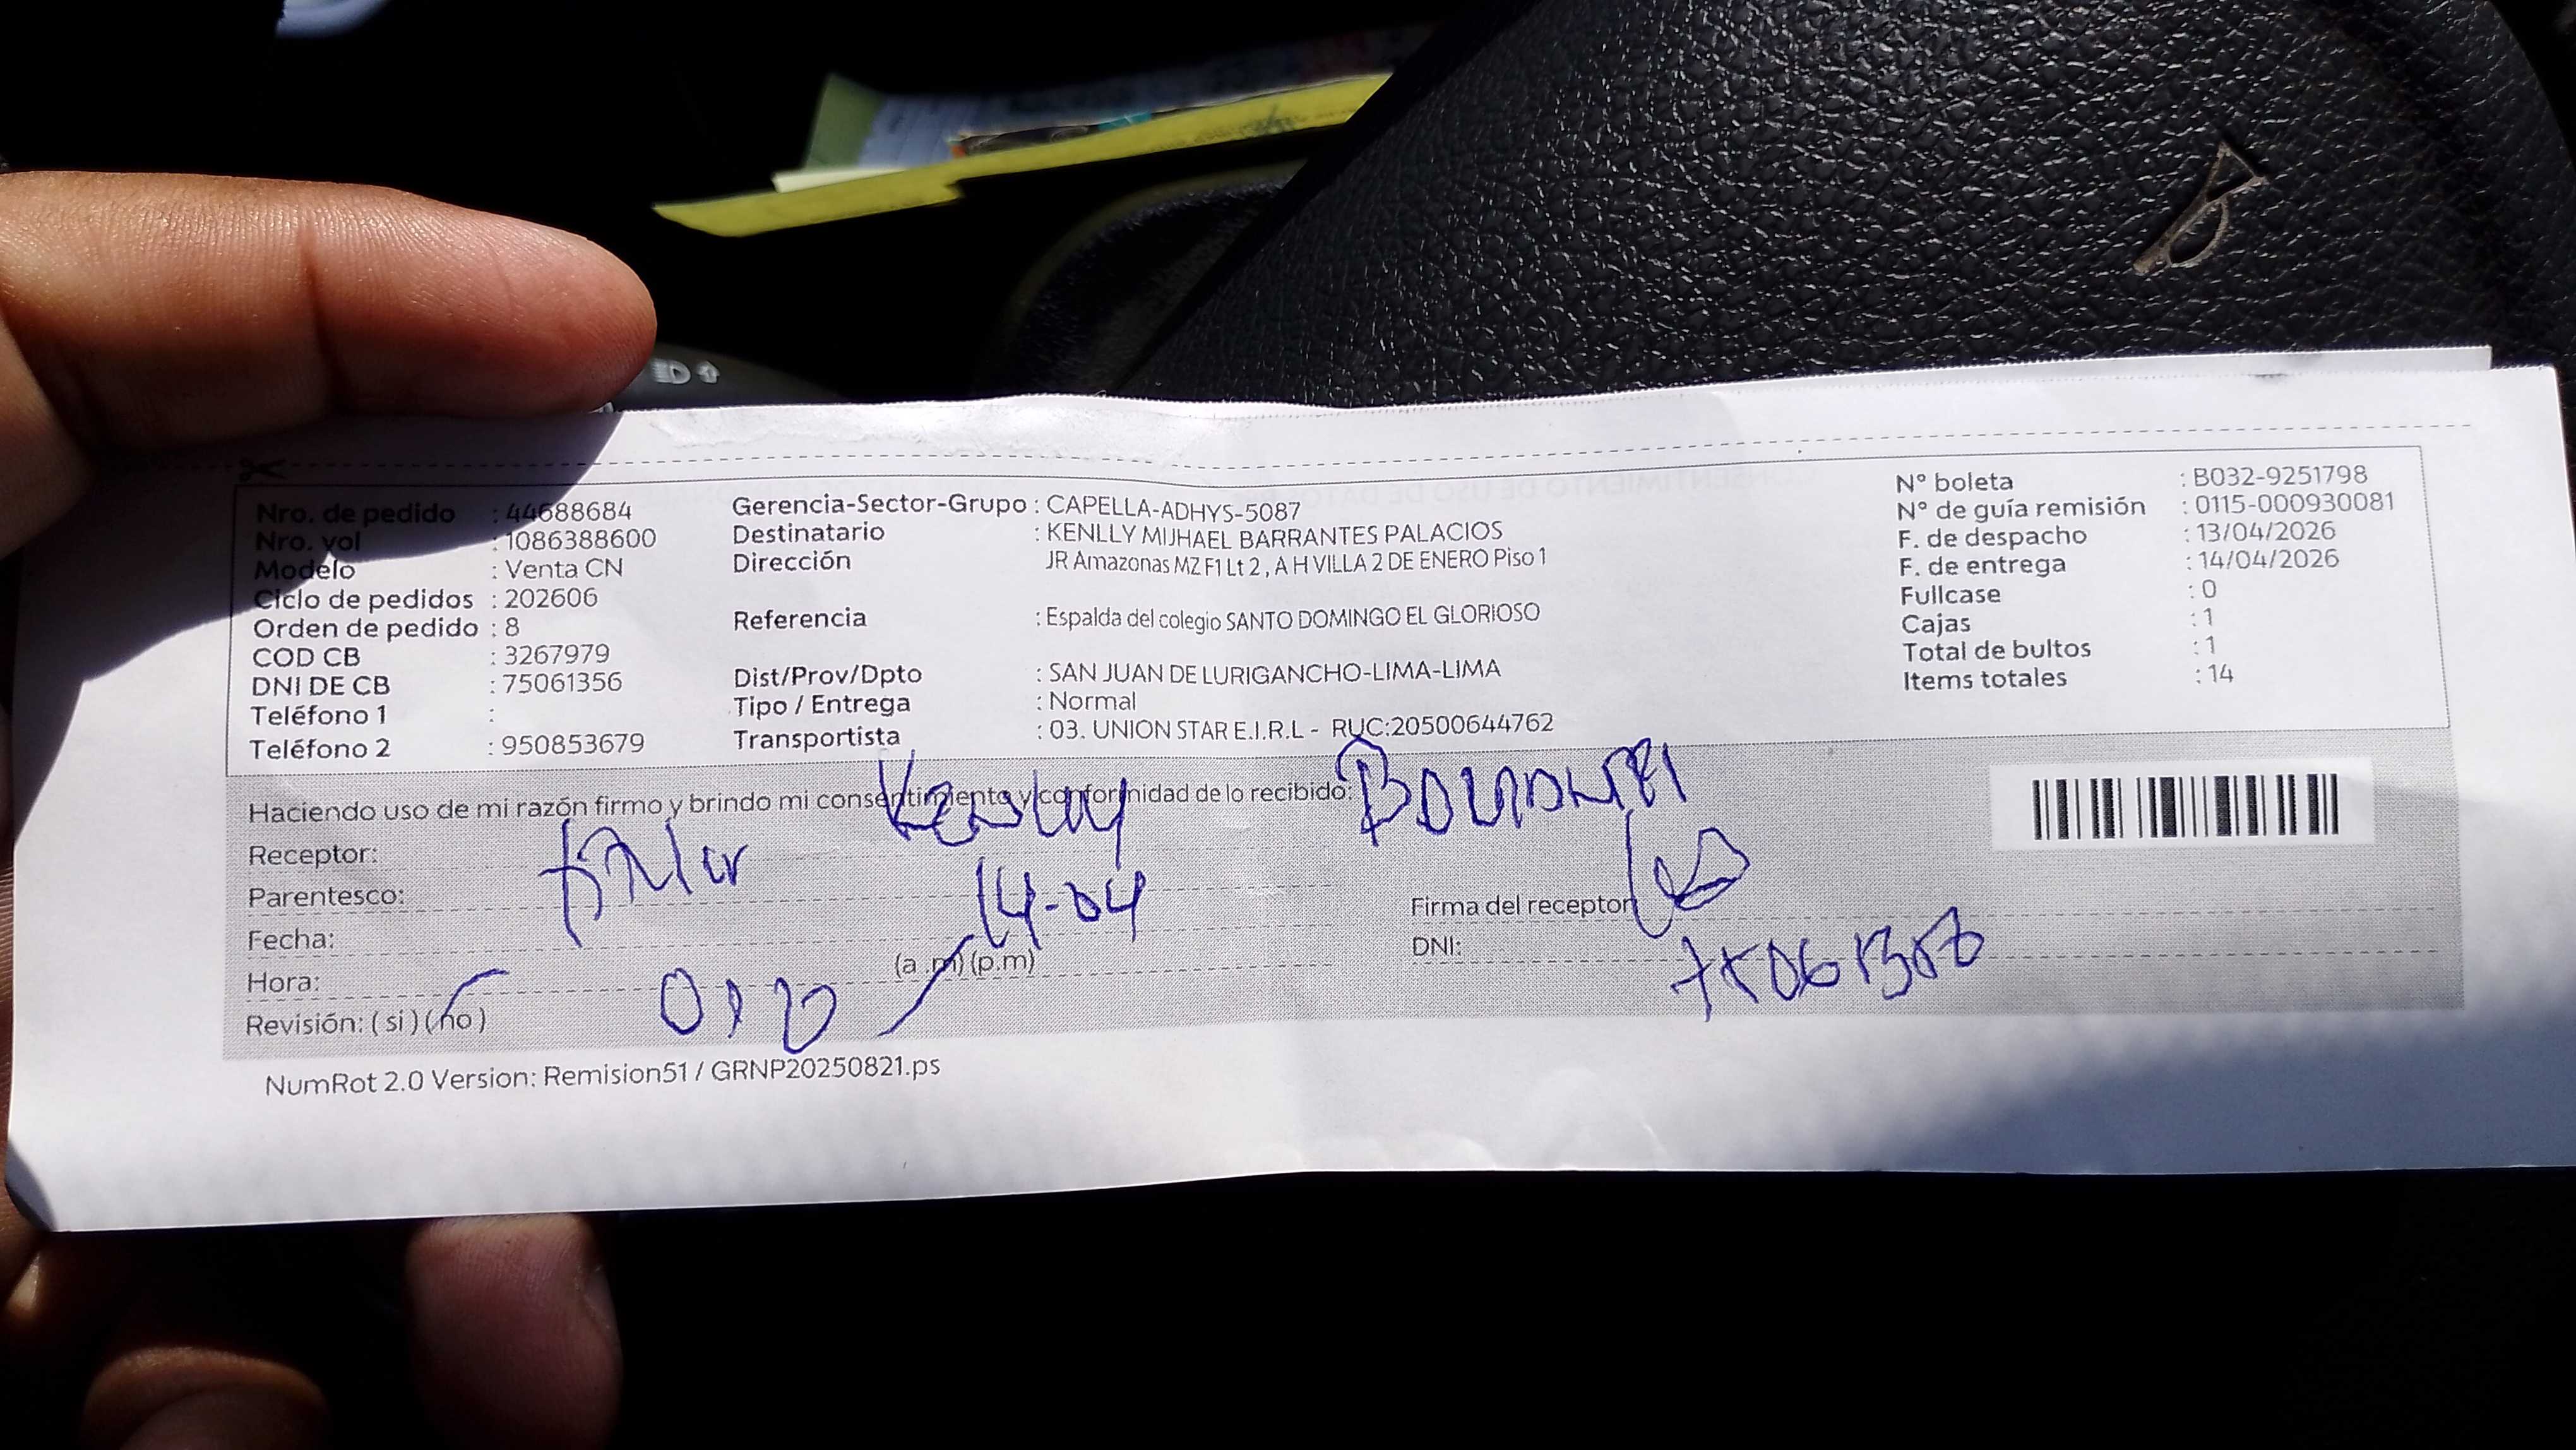 Nro. de pedido : 44688684
Nro. vol : 1086388600
Modelo : Venta CN
Ciclo de pedidos : 202606
Orden de pedido : 8
COD CB : 3267979
DNI DE CB : 75061356
Teléfono 1 :
Teléfono 2 : 950853679
Gerencia-Sector-Grupo : CAPELLA-ADHYS-5087
Destinatario : KENLLY MIJHAEL BARRANTES PALACIOS
Dirección JR Amazonas MZ F1 Lt 2 , A H VILLA 2 DE ENERO Piso 1
Referencia : Espalda del colegio SANTO DOMINGO EL GLORIOSO
Dist/Prov/Dpto : SAN JUAN DE LURIGANCHO-LIMA-LIMA
Tipo / Entrega : Normal
Transportista : 03. UNION STAR E.I.R.L - RUC:20500644762
N° boleta : B032-9251798
N° de guía remisión : 0115-000930081
F. de despacho : 13/04/2026
F. de entrega : 14/04/2026
Fullcase : 0
Cajas : 1
Total de bultos : 1
Items totales : 14
Haciendo uso de mi razón firmo y brindo mi consentimiento y conformidad de lo recibido:
Receptor:
Parentesco:
Fecha: 14-04
Hora: (a .m) (p.m)
Revisión: ( si ) ( no )
Firma del receptor
DNI:
NumRot 2.0 Version: Remision51 / GRNP20250821.ps